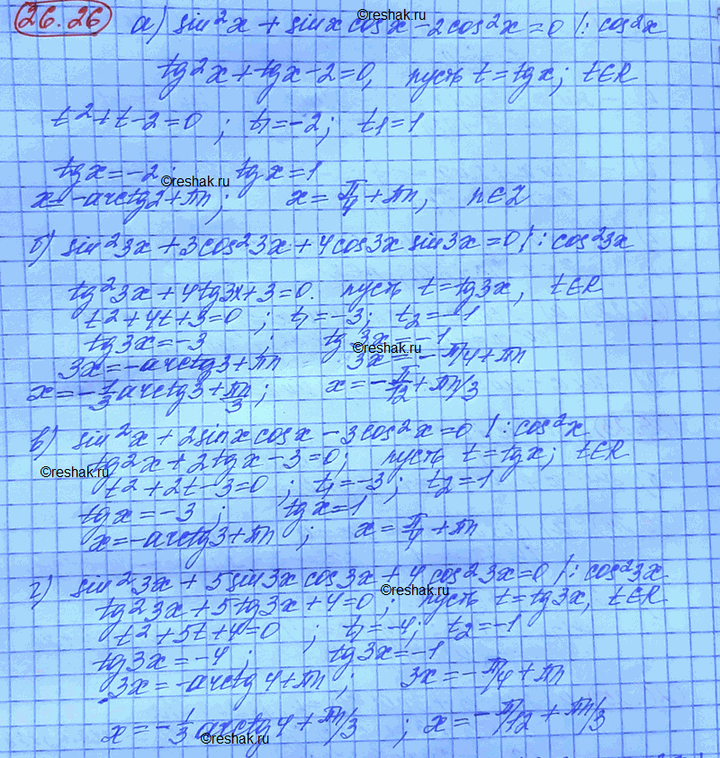 26.26 а) sin²x + sinx cosx - 2cos²x = 0 |: cos²x
©reshak.ru
tg²x + tgx - 2 = 0, пусть t = tgx; t∈R
t² + t - 2 = 0 ; t₁ = -2; t₁ = 1
tgx = -2; tgx = 1
©reshak.ru
x = -arctg2 + πn; x = π/4 + πn, n∈Z
б) sin²3x + 3cos²3x + 4cos3x sin3x = 0 |: cos²3x
tg²3x + 4tg3x + 3 = 0. пусть t = tg3x, t∈R
t² + 4t + 3 = 0 ; t₁ = -3; t₂ = -1
tg3x = -3 ; tg3x = -1
©reshak.ru
3x = -arctg3 + πn 3x = -π/4 + πn
x = -1/3 arctg3 + πn/3 ; x = -π/12 + πn/3
в) sin²x + 2sinx cosx - 3cos²x = 0 |: cos²x
tg²x + 2tgx - 3 = 0; пусть t = tgx; t∈R
©reshak.ru
t² + 2t - 3 = 0 ; t₁ = -3; t₂ = 1
tgx = -3 ; tgx = 1
x = -arctg3 + πn ; x = π/4 + πn
г) sin²3x + 5sin3x cos3x + 4cos²3x = 0 |: cos²3x
©reshak.ru
tg²3x + 5tg3x + 4 = 0 ; пусть t = tg3x, t∈R
t² + 5t + 4 = 0 ; t₁ = -4; t₂ = -1
tg3x = -4 ; tg3x = -1
3x = -arctg4 + πn ; 3x = -π/4 + πn
x = -1/3 arctg4 + πn/3 ; x = -π/12 + πn/3
©reshak.ru